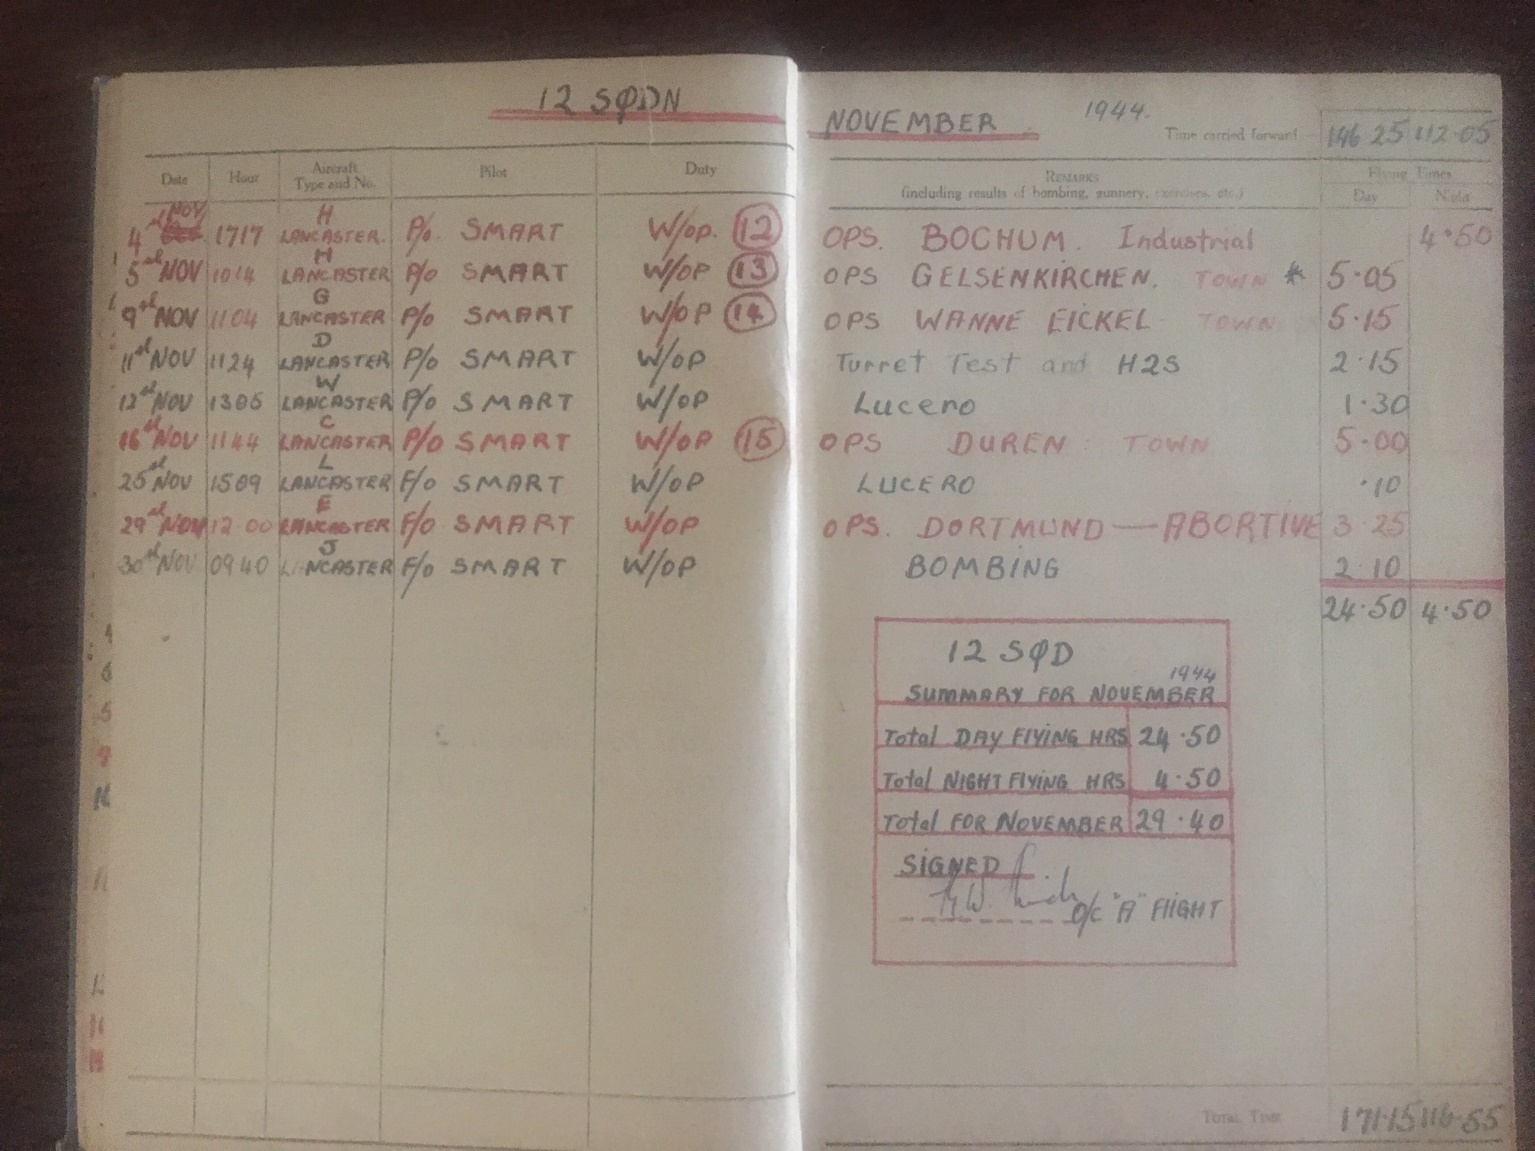 12 SQDN
Date Hour Aircraft Type and No. Pilot Duty
4 NOV 1717 H LANCASTER. P/o. SMART W/OP. 12
5 NOV 1014 H LANCASTER P/o SMART W/OP 13
9 NOV 1104 G LANCASTER P/o SMART W/OP 14
11 NOV 1124 D LANCASTER P/o SMART W/OP
12 NOV 1305 W LANCASTER P/o SMART W/OP
16 NOV 1144 C LANCASTER P/O SMART W/OP 15
25 NOV 1509 L LANCASTER F/O SMART W/OP
29 NOV 12.00 E LANCASTER F/O SMART W/OP
30 NOV 0940 J LANCASTER F/O SMART W/OP
NOVEMBER 1944.
Time carried forward 146 25 112.05
REMARKS Flying Times
(including results of bombing, gunnery, exercises, etc.) Day Night
OPS. BOCHUM. Industrial 4.50
OPS GELSENKIRCHEN. TOWN * 5.05
OPS WANNE EICKEL TOWN 5.15
Turret Test and H2S 2.15
Lucero 1.30
OPS DUREN TOWN 5.00
LUCERO .10
OPS. DORTMUND — ABORTIVE 3.25
BOMBING 2.10
24.50 4.50
12 SQD
1944
SUMMARY FOR NOVEMBER
Total DAY FlYING HRS 24.50
Total NIGHT FlYING HRS 4.50
Total FOR NOVEMBER 29.40
SIGNED
O/C "A" FlIGHT
TOTAL TIME 171.15 116.55